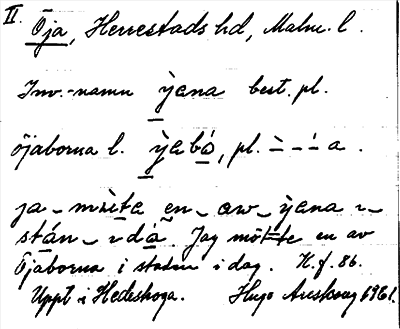 II. Öja, Herrestads hd, Malm. l.
Inv.-namn ỳana best. pl.
öjaborna l. ỳabó, pl. ˋ – – ˊ a.
ja mø̀ta en aw ỳana ı
stán ı dá. Jag mötte en av
Öjaborna i staden i dag. K. f. 86.
Uppt. i Hedeskoga. Hugo Areskoug 1961.